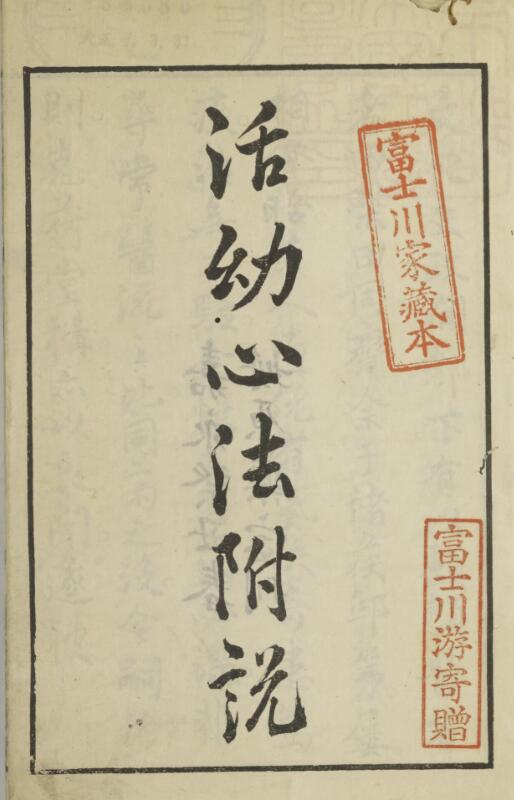 富士川家藏本
富士川游寄贈
活幼心法附説